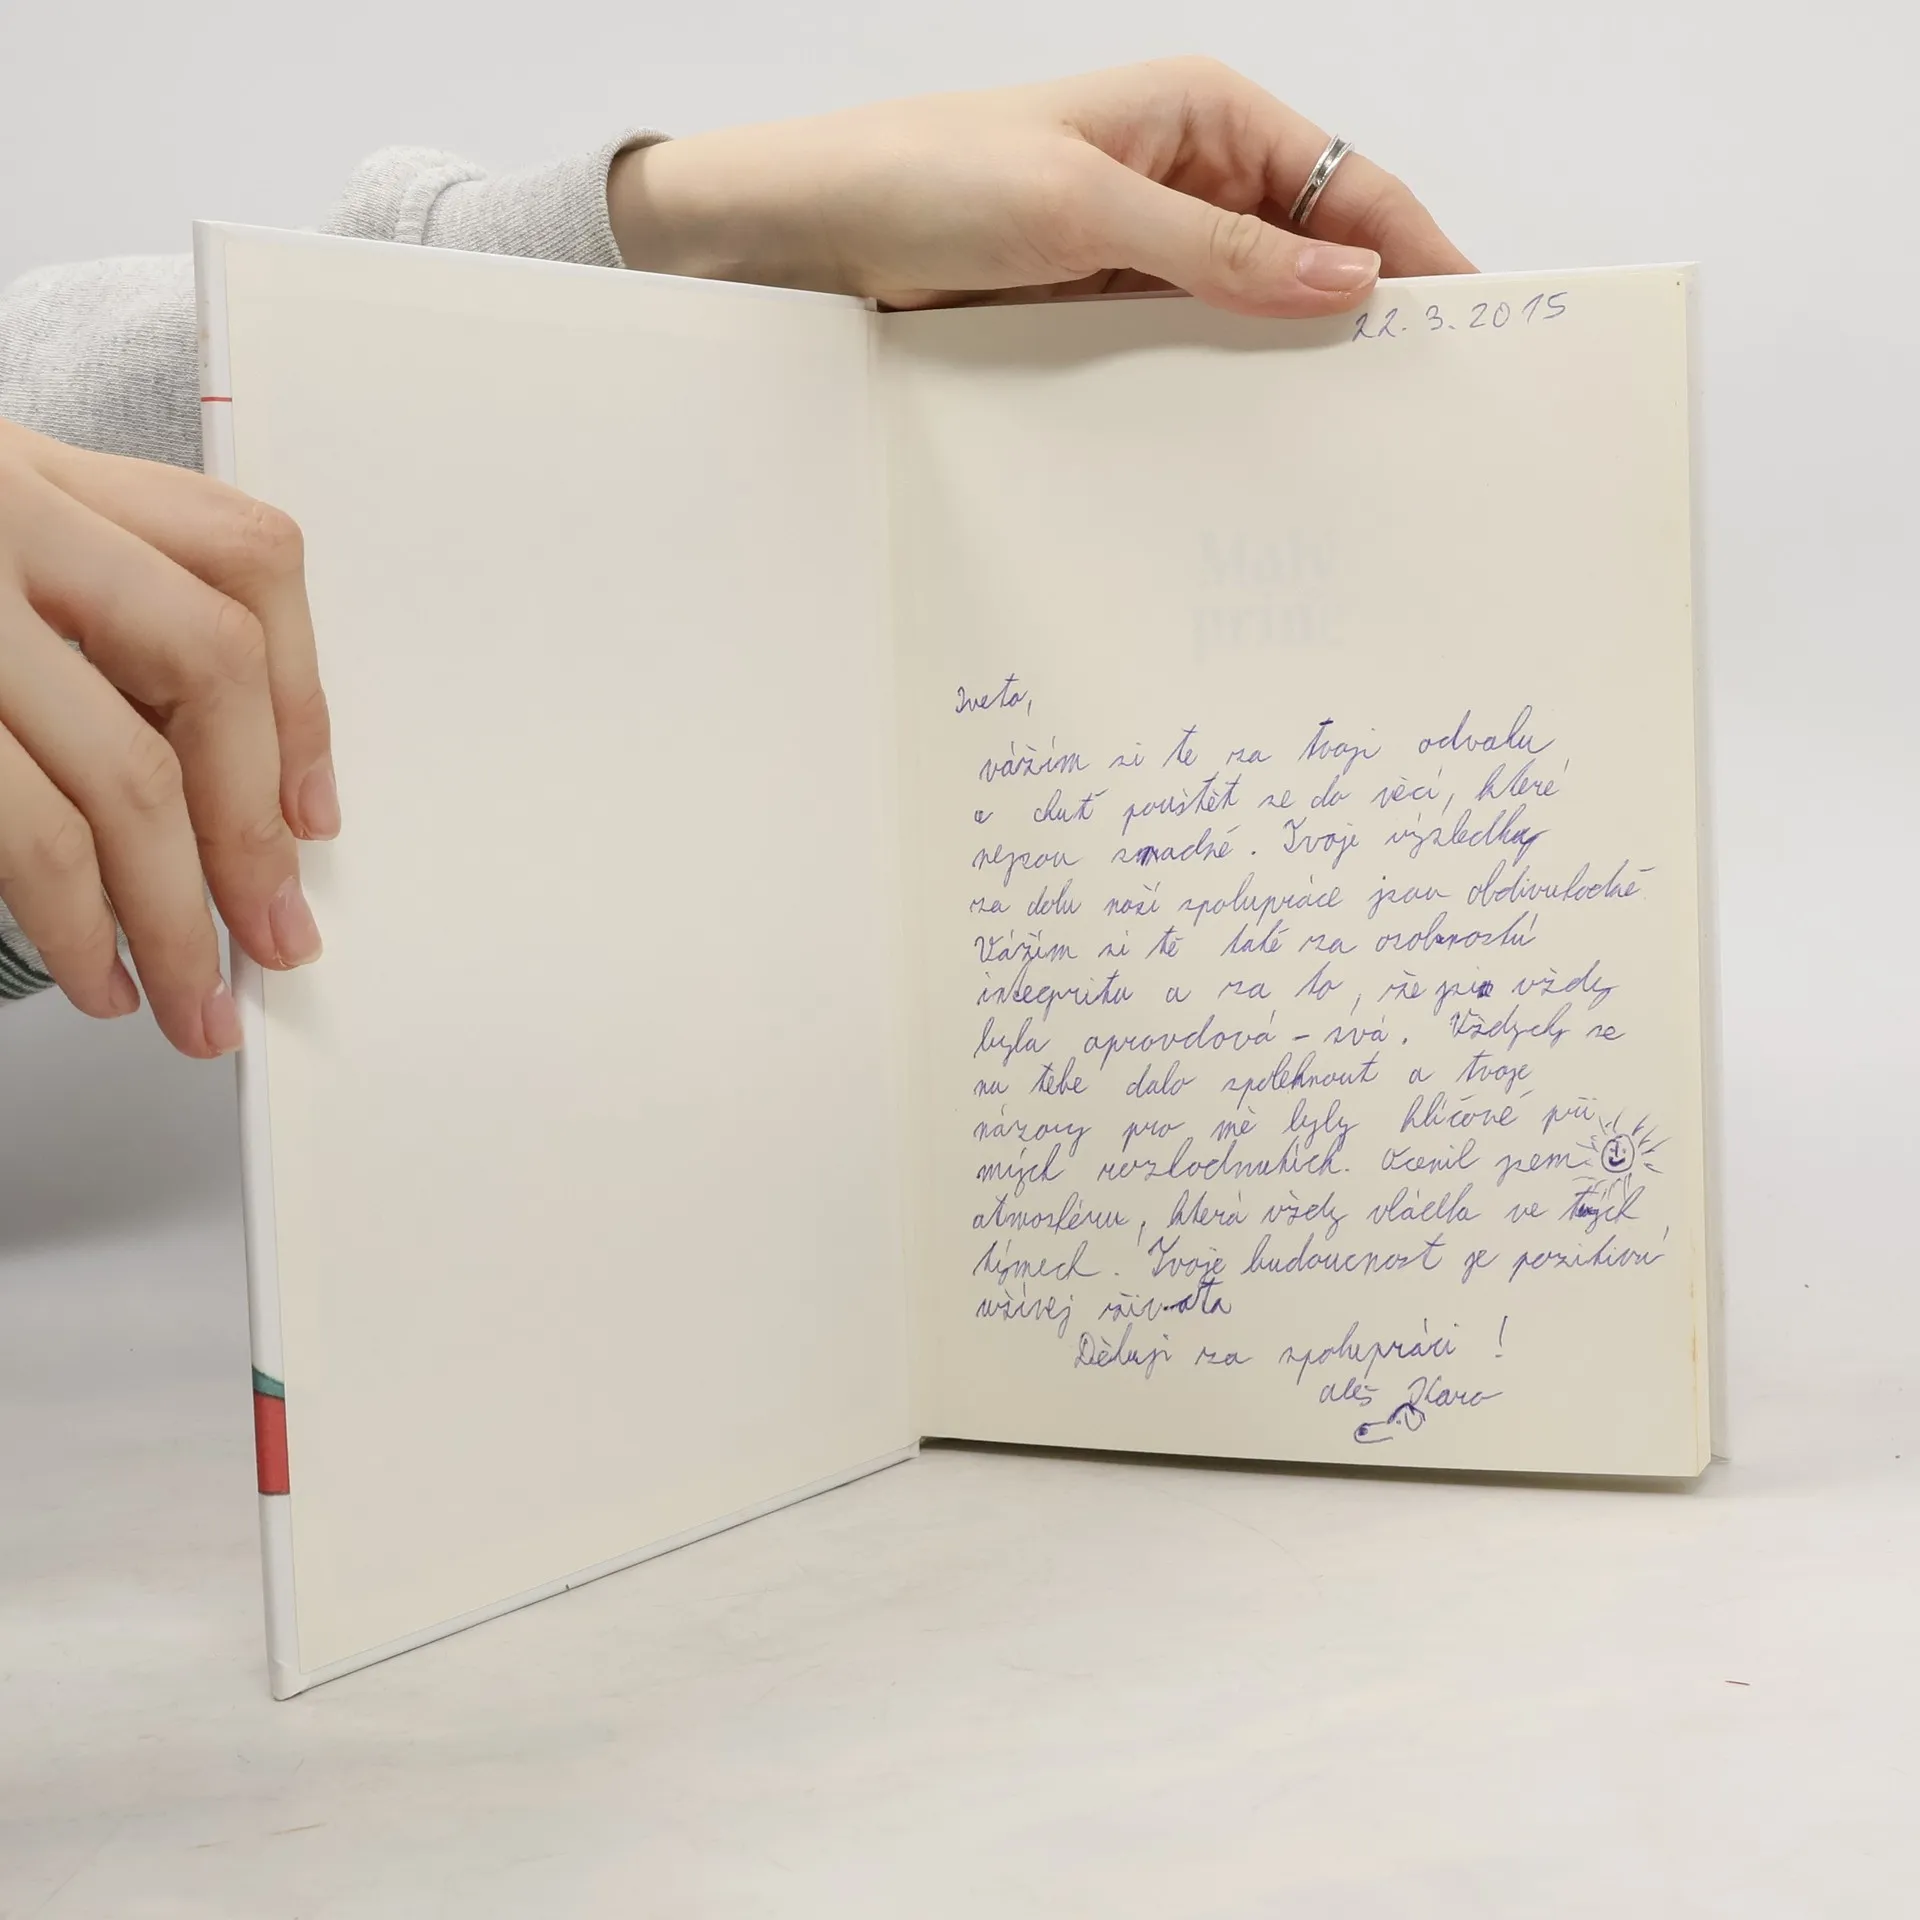 22. 3. 2015
Malý
princ
Iveto,
vážím si tě za tvoji odvahu
a chuť pouštět se do věcí, které
nejsou snadné. Tvoje výsledky
za dobu naší spolupráce jsou obdivuhodné.
Vážím si tě také za osobnostní
integritu a za to, že jsi vždy
byla opravdová - svá. Vždycky se
na tebe dalo spolehnout a tvoje
názory pro mě byly klíčové při
mých rozhodnutích. Ocenil jsem
atmosféru, která vždy vládla ve tvých
týmech. Tvoje budoucnost je pozitivní,
užívej života
Děkuji za spolupráci !
Aleš